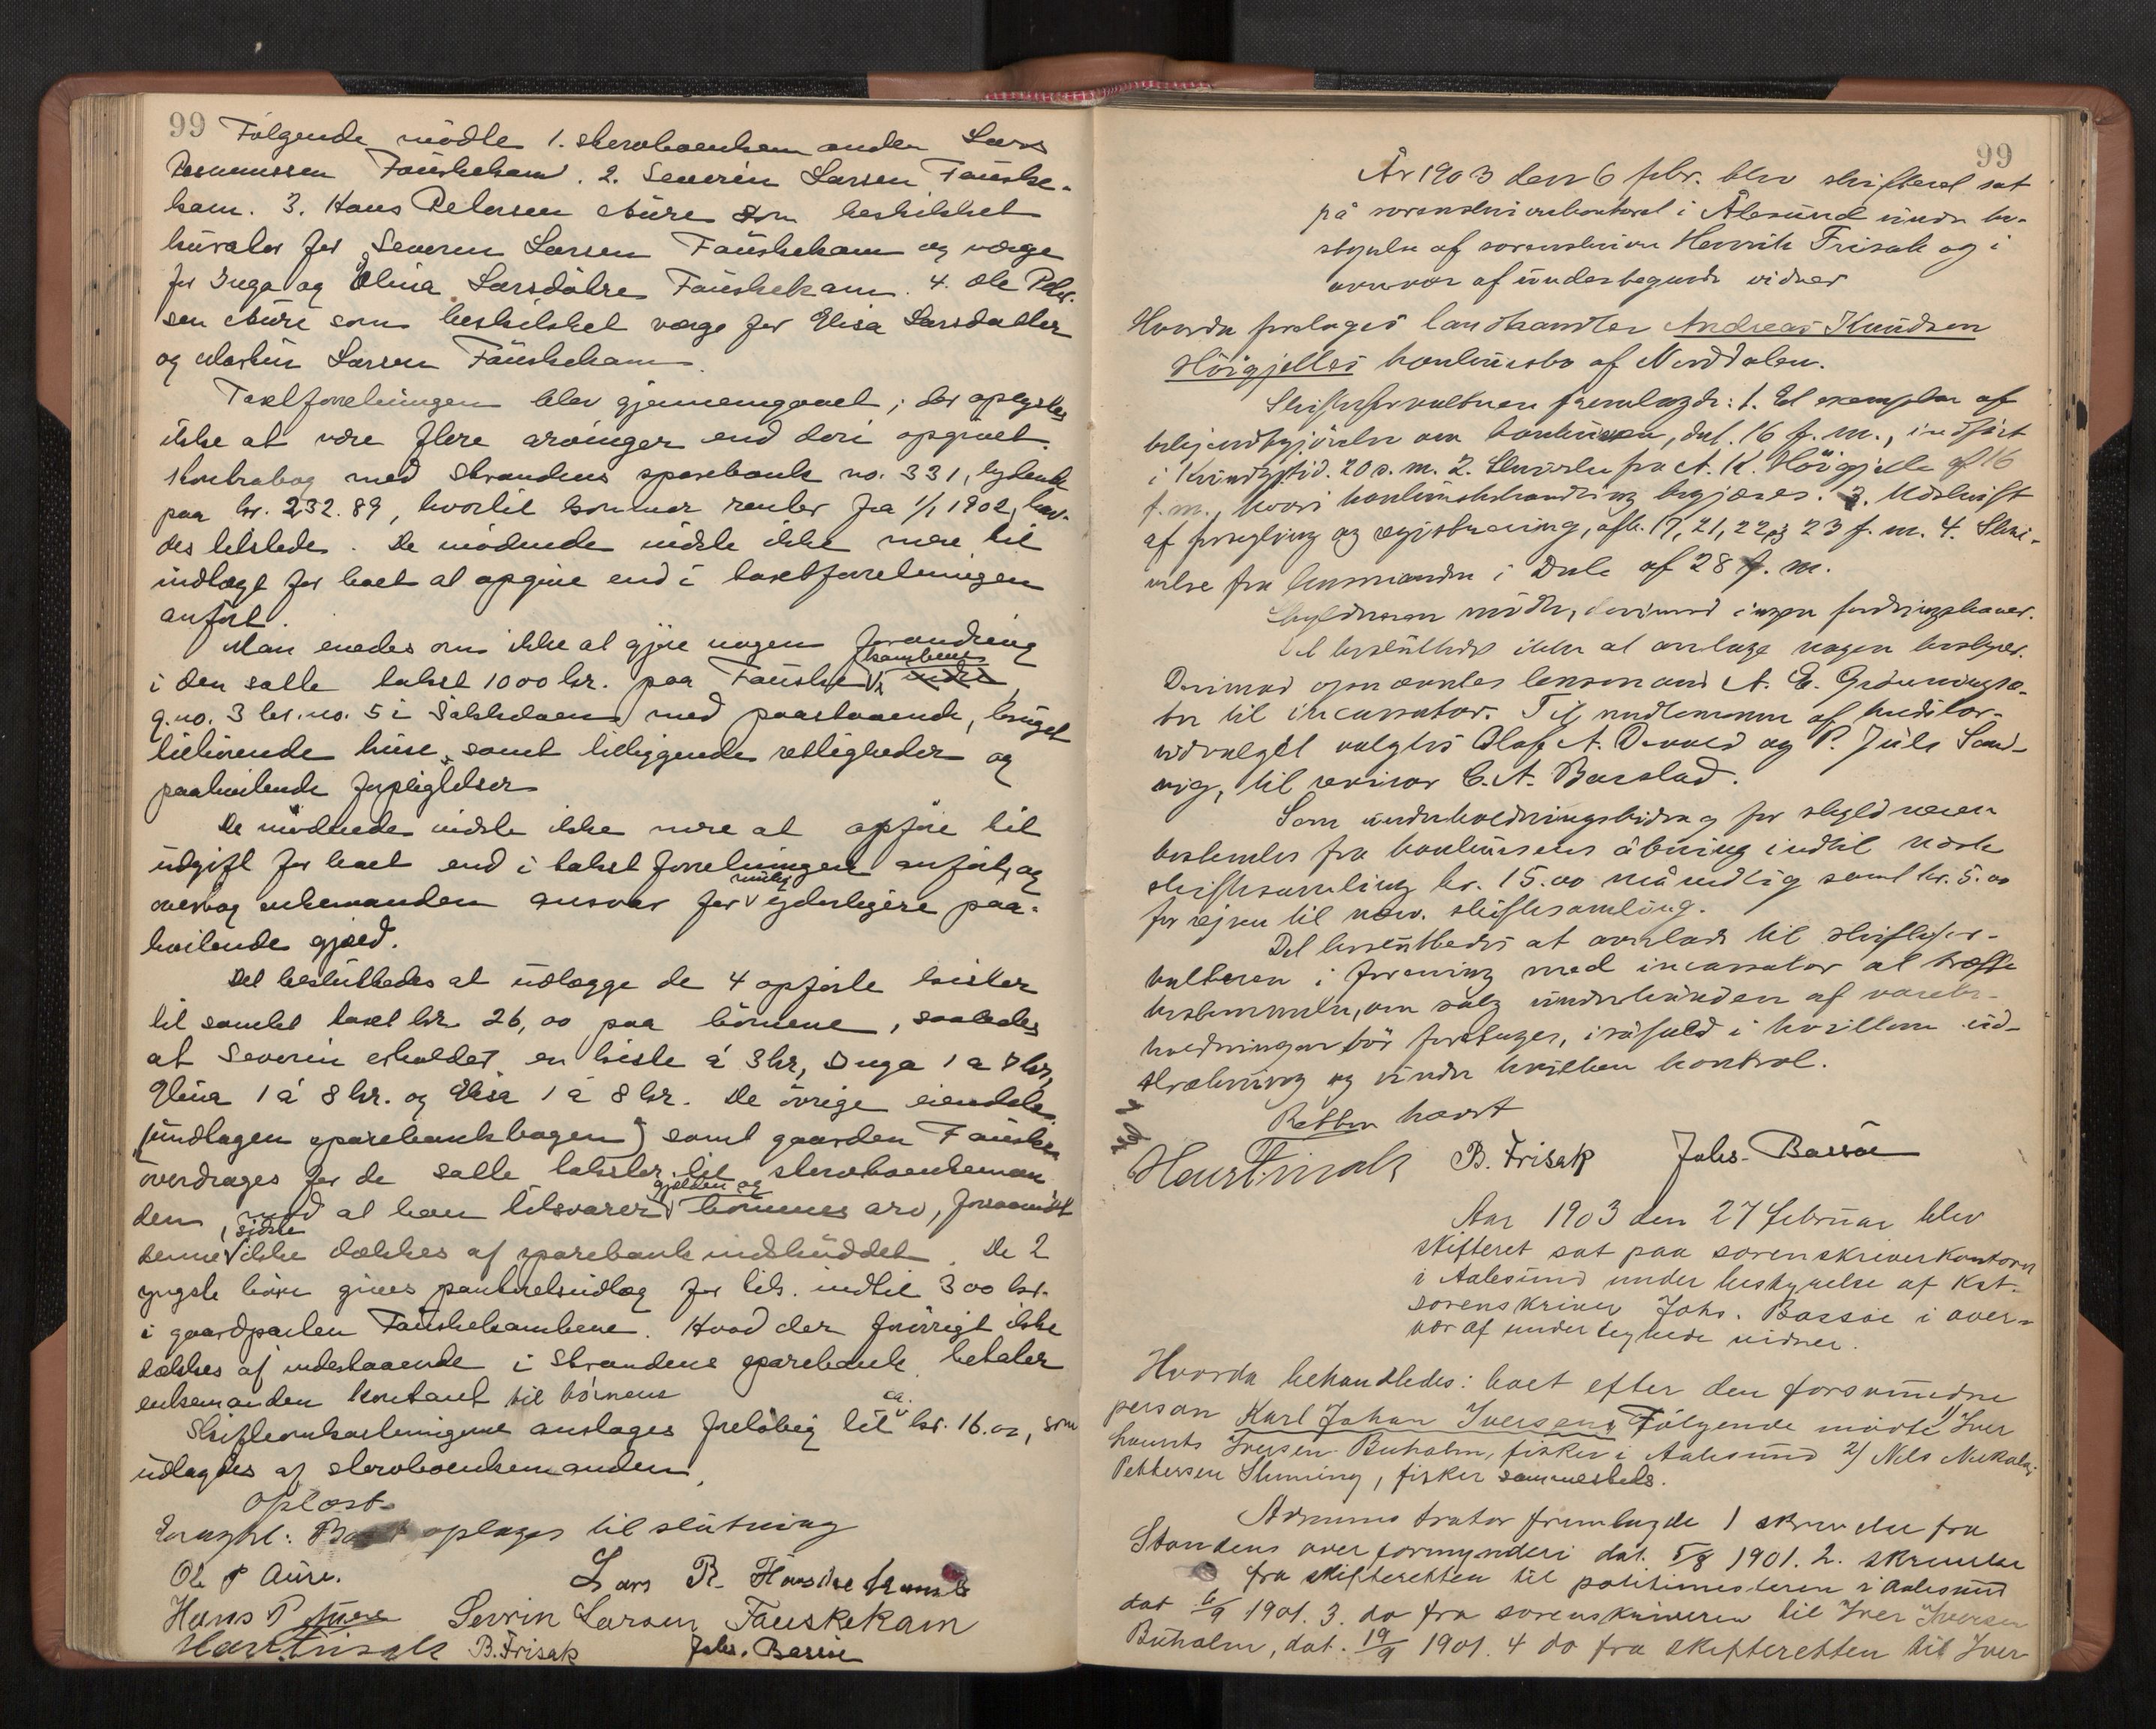 99 Følgende mödte 1. stervboenkemanden Lars
Rasmussen Fauskekam. 2. Severin Larsen Fauske-
kam. 3. Hans Petersen Aure som beskikket
kurator for Severin Larsen Fauskekam og verge
for Inga og Elina Larsdötre Fauskekam. 4. Ole Peter-
sen Aure som beskikket verge for Elisa Larsdatter
og Martin Larsen Fauskekam.
Taxtforretningen blev gjennemgaaet; der oplystes
ikke at være flere arvinger end deri opgivet.
Kontrabog med Strandens sparebank no. 331, lydende
paa kr. 232.89, hvortil kommer renter fra 1/1 1902, hav-
des tilstede. De mödende vidste ikke mere til
indtægt for boet at opgive end i taxtforretningen
anfört.
Man enedes om ikke at gjöre nogen forandring
i den satte takst 1000 kr. paa Fauske kambene
g.no. 3 br.no. 5 i Søkkelven med paastaaende, bruget
tilhörende huse, samt tilliggende rettigheder og
paahvilende forpligtelser
De mödende vidste ikke mere at opföre til
udgift for boet end i takst forretningen anfört, og
overtog enkemanden ansvar for mulig yderligere paa-
hvilende gjæld.
Det besluttedes at udlægge de 4 opförte kister
til samlet taxt kr. 26,00 paa börnene, saaledes
at Severin erholder en kiste á 3 kr, Inga 1 a 7 kr,
Elina 1 á 8 kr. og Elisa 1 á 8 kr. De övrige eiendele
(undtagen sparebankbogen) samt gaarden Fauske
overdrages for de satte takster til stervboenkeman
den, mod at han tilsvarer gjælden og börnenes arv, forsaavidt
denne sidste ikke dækkes af sparebankindskuddet. De 2
yngste börn gives panteretsudlæg for tils. indtil 300 kr.
i gaardparten Fauskekambene. Hvad der forövrigt ikke
dækkes af indestaaende i Strandens sparebank betaler
enkemanden kontant til börnene
Skifteomkostningerne anslages foreløbig til ca. kr. 16.00, som
udlagdes af stervboenkemanden.
Oplæst.
Eragtet: Boet optages til slutning
Ole P Aure. Lars R. Fauske kamb
Hans P Aure Sevrin Larsen Fauskekam
Henr Frisak B. Frisak Johs. Bassøe
99
År 1903 den 6 febr. blev skifteret sat
på sorenskriverkontoret i Ålesund under be-
styrelse af sorenskriver Henrik Frisak og i
overvær af undertegnede vidner
Hvorda foretoges landhandler Andreas Knudsen
Höigjelles konkursbo af Norddalen.
Skifteforvalteren fremlagde: 1. Et exemplar af
bekjendtgjörelse om konkursen, dat. 16 f. m., indfört
i Kundgj.tid. 20 s. m. 2. Skrivelse fra A. K. Höigjelle af 16
f. m., hvori konkursbehandling begjæres. 3. Udskrift
af forsegling og registrering, afh. 17, 21, 22 og 23 f. m. 4. Skri-
velse fra lensmanden i Dale af 28 f. m.
Skyldneren mödte, derimod ingen fordringshaver.
Det besluttedes ikke at antage nogen bestyrer.
Derimod opnævntes lensmand A. E. Grönningsæ-
ter til incassator. Til medlemmer af kreditor-
udvalget valgtes Olaf A. Devold og P. Juls Sand-
vig, til revisor C. A. Barstad.
Som underholdningsbidrag for skyldneren
bestemtes fra konkursens åbning indtil næste
skiftesamling kr. 15.00 månedlig samt kr. 5.00
for rejsen til nærv. skiftesamling.
Det besluttedes at overlade til skiftefor-
valteren i forening med incassator at træffe
bestemmelse, om salg underhånden af varebe-
holdningen bör foretages, i såfald i hvilken ud-
strækning og under hvilken kontrol.
Retten hævet
Henr Frisak B. Frisak Johs. Bassøe
Aar 1903 den 27 februar blev
skifteret sat paa sorenskriverkontoret
i Aalesund under bestyrelse af Kst.
sorenskriver Johs. Bassøe i over-
vær af undertegnede vidner.
Hvorda behandledes: boet efter den forsvundne
person Karl Johan Iversen. Følgende mødte 1) Iver
Iversen Buholm, fisker i Aalesund 2) Nels Nikolai
Pettersen Slyning, fisker sammesteds.
Administrator fremlagde 1 skrivelse fra
Standens overformynderi dat. 5/8 1901. 2. skrivelse
fra skifteretten til politimesteren i Aalesund
dat 6/9 1901. 3. do fra sorenskriveren til Iver Iversen
Buholm, dat. 19/9 1901. 4 do fra skifteretten til Iver